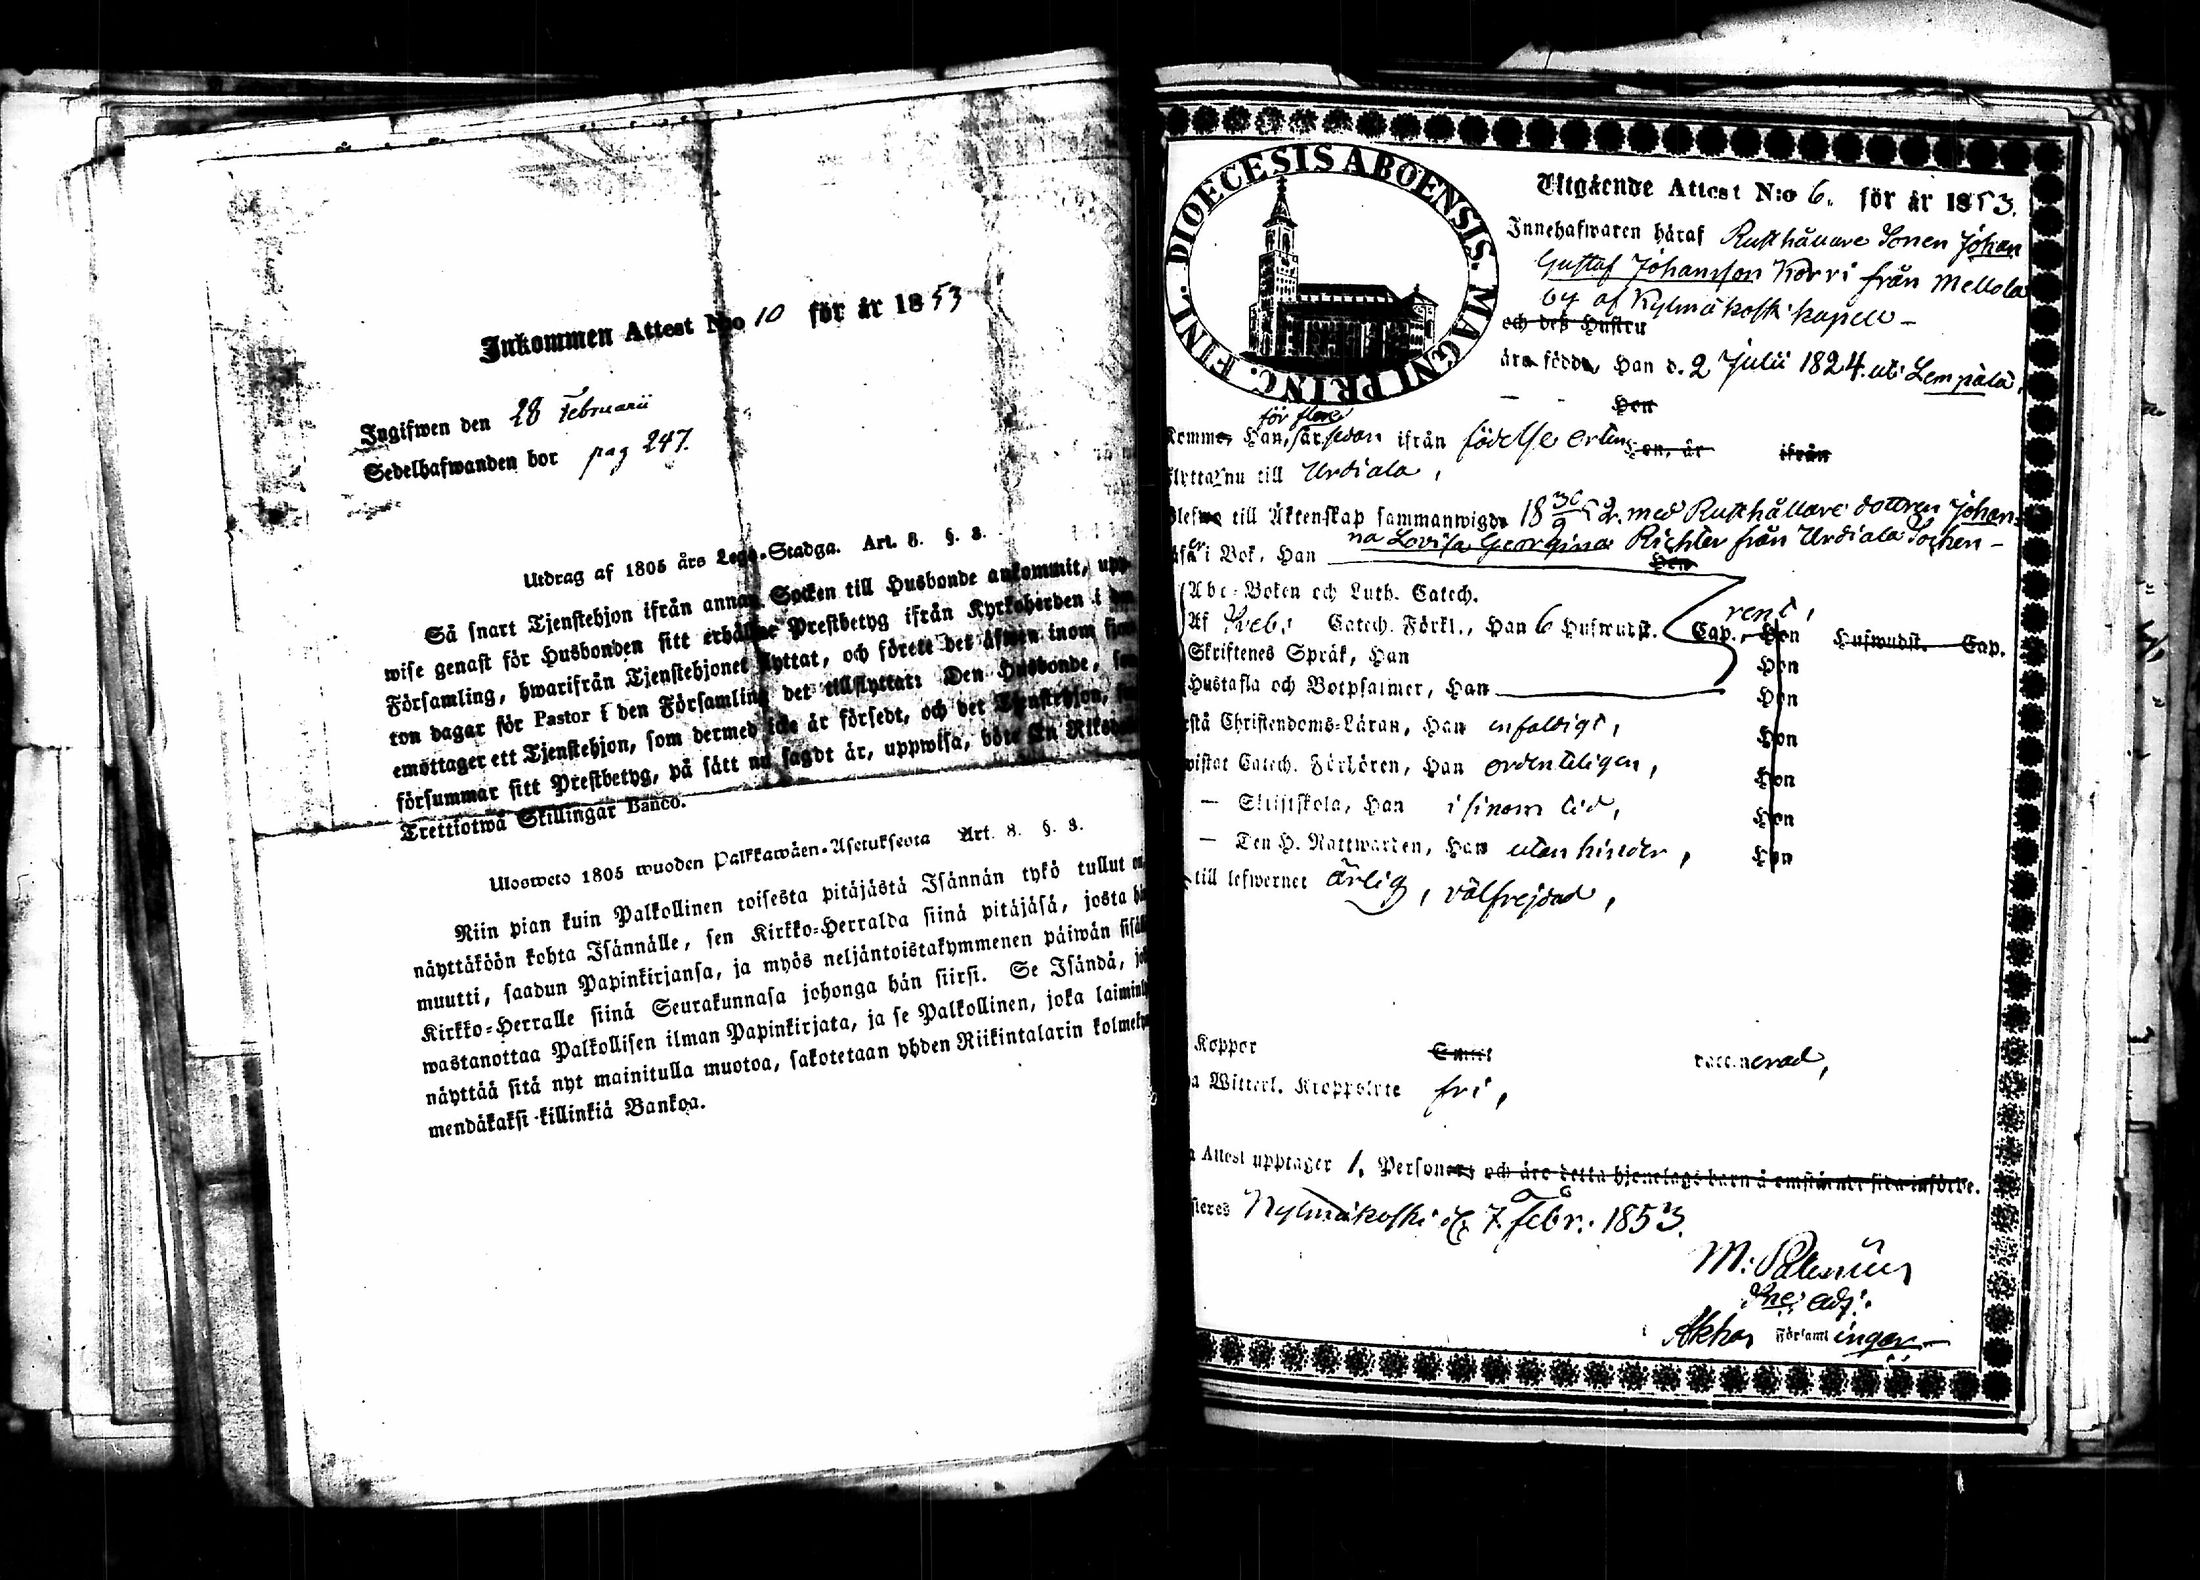 Inkommen Attest N:o 10 för år 1853
Ingifwen den 28 Februarii
Sedelhafwanden bor pag 247.
Utdrag af 1805 års Lego-Stadga. Art. 8. §. 3.
Så snart Tjenstehjon ifrån annan Socken till Husbonde ankommit, upp-
wise genast för Husbonden sitt erhållne Prestbetyg ifrån Kyrkoherden i den
Församling, hwarifrån Tjenstehjonet flyttat, och förete det äfwen inom fjor-
ton dagar för Pastor i den Församling det tillflyttat: Den Husbonde, som
emottager ett Tjenstehjon, som dermed icke är försedt, och det Tjenstehjon, som
försummar sitt Prestbetyg, på sätt nu sagdt är, uppwisa, böte En Riksdaler
Trettiotwå Skillingar Banco.
Ulosweto 1805 wuoden Palkkawäen-Asetuksesta Art. 8. §. 3.
Niin pian kuin Palkollinen toisesta pitäjästä Isännän tykö tullut on,
näyttäköön kohta Isännälle, sen Kirkko-Herralda siinä pitäjäsä, josta hän
muutti, saadun Papinkirjansa, ja myös neljäntoistakymmenen päiwän sisällä
Kirkko-Herralle siinä Seurakunnasa johonga hän siirsi. Se Isändä, joka
wastanottaa Palkollisen ilman Papinkirjata, ja se Palkollinen, joka laiminlyö
näyttää sitä nyt mainitulla muotoa, sakotetaan yhden Riikintalarin kolmekym-
mendäkaksi killinkiä Bankoa.
DIOECESIS ABOENSIS. MAGNI PRINC. FINL.
Utgående Attest N:o 6. för år 1853.
Innehafwaren häraf Rusthållare Sonen Johan
Gustaf Johansson Korri från Mellola
by af Kylmäkoski kapell –
och des Hustru
äro födde, Han d. 2 Julii 1824. uti Lempälä,
Hon
för flere
Kommer Han, år sedan ifrån födelse orten Hon, år ifrån
flytta nu till Urdiala,
blefwo till Äktenskap sammanwigde 18 30/9 52. med Rusthållare dottren Johan-
na Lovisa Georgina Richter från Urdiala Sochen –
läsa i Bok, Han Hon
Abc-Boken och Luth. Catech.
Af Sveb. Catech. Förkl., Han 6 Hufwudst. Cap., rent, Hon Hufwudst. Cap.
Skriftenes Språk, Han Hon
Hustafla och Botpsalmer, Han Hon
rstå Christendoms-Läran, Han enfaldigt, Hon
wistat Catech. Förhören, Han ordenteligen, Hon
— Skriftskola, Han i sinom tid, Hon
— Den H. Nattwarden, Han utan hinder, Hon
till lefwernet ärlig, välfrejdad,
Koppor vaccinerad,
a Witterl. Kroppslyte fri,
a Attest upptager 1. Personer och äro detta hjonelags barn å omstående sida införde.
steres Kylmäkoski d. 7 febr. 1853.
M: Palenius
adj.
i Akkas Församlingar –